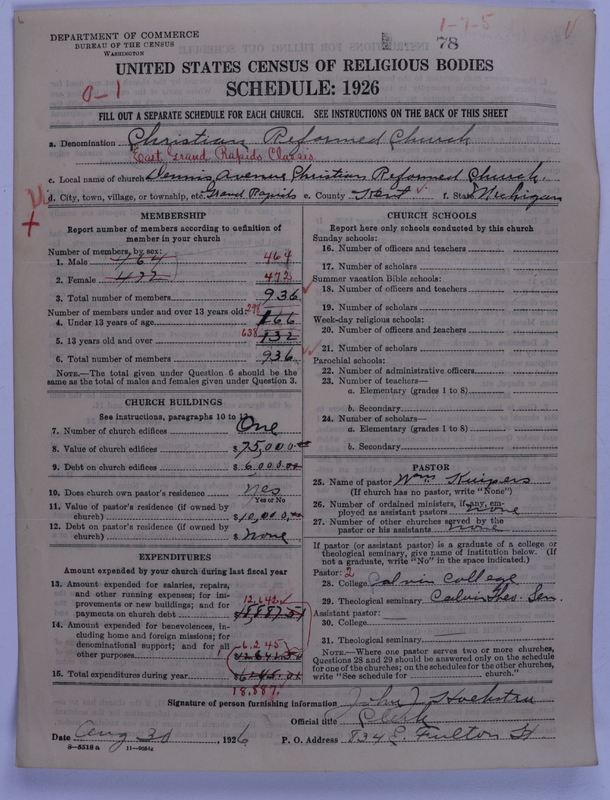 1-7-5
78
DEPARTMENT OF COMMERCE
BUREAU OF THE CENSUS
WASHINGTON
UNITED STATES CENSUS OF RELIGIOUS BODIES
SCHEDULE: 1926
0-1
FILL OUT A SEPARATE SCHEDULE FOR EACH CHURCH. SEE INSTRUCTIONS ON THE BACK OF THIS SHEET
a. Denomination Christian Reformed Church
East Grand Rapids Classis
c. Local name of church Dennis Avenue Christian Reformed Church
d. City, town, village, or township, etc. Grand Rapids e. County Kent f. State Michigan
MEMBERSHIP
Report number of members according to definition of
member in your church
Number of members, by sex:
1. Male 464 464
2. Female 472 472
3. Total number of members 936
Number of members under and over 13 years old:
298
4. Under 13 years of age 166
638
5. 13 years old and over 132
6. Total number of members 936
NOTE.—The total given under Question 6 should be the
same as the total of males and females given under Question 3.
CHURCH BUILDINGS
See instructions, paragraphs 10 to 12
7. Number of church edifices One
8. Value of church edifices $75,000.00
9. Debt on church edifices $6000.00
10. Does church own pastor's residence Yes
Yes or No
11. Value of pastor's residence (if owned by
church) $10,000.00
12. Debt on pastor's residence (if owned by
church) $ None
EXPENDITURES
Amount expended by your church during last fiscal year
13. Amount expended for salaries, repairs,
and other running expenses; for im-
provements or new buildings; and for
payments on church debt
12,642
14. Amount expended for benevolences, in-
cluding home and foreign missions; for
denominational support; and for all
other purposes
6,245
15. Total expenditures during year $
18,887
CHURCH SCHOOLS
Report here only schools conducted by this church
Sunday schools:
16. Number of officers and teachers
17. Number of scholars
Summer vacation Bible schools:
18. Number of officers and teachers
19. Number of scholars
Week-day religious schools:
20. Number of officers and teachers
21. Number of scholars
Parochial schools:
22. Number of administrative officers
23. Number of teachers—
a. Elementary (grades 1 to 8)
b. Secondary
24. Number of scholars—
a. Elementary (grades 1 to 8)
b. Secondary
PASTOR
25. Name of pastor Wm. Kuipers
(If church has no pastor, write "None")
26. Number of ordained ministers, if any, em-
ployed as assistant pastors None
27. Number of other churches served by the
pastor or his assistants None
If pastor (or assistant pastor) is a graduate of a college or
theological seminary, give name of institution below. (If
not a graduate, write "No" in the space indicated.)
Pastor: 2
28. College Calvin College
29. Theological seminary Calvin Theo. Sem.
Assistant pastor:
30. College
31. Theological seminary
NOTE.—Where one pastor serves two or more churches,
Questions 28 and 29 should be answered only on the schedule
for one of the churches; on the schedules for the other churches,
write "See schedule for ____ church."
Signature of person furnishing information John J. Hoekstra
Official title Clerk
Date Aug 30, 1926 P. O. Address 834 E. Fulton St
8-5518 a 11-9084z